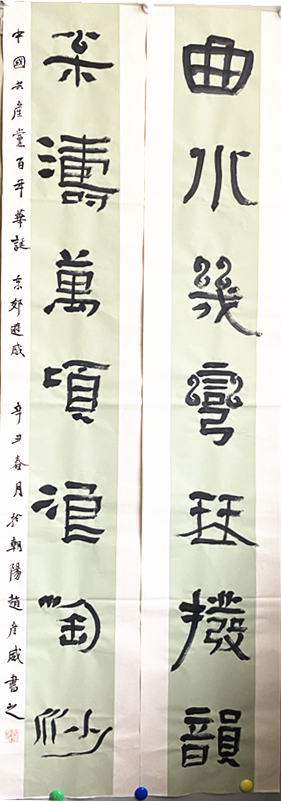 曲水幾彎琴撥韻
松濤萬頃浪淘沙
中國共產黨百年華誕 京郊遊感 辛丑春月於朝陽趙彦威書之